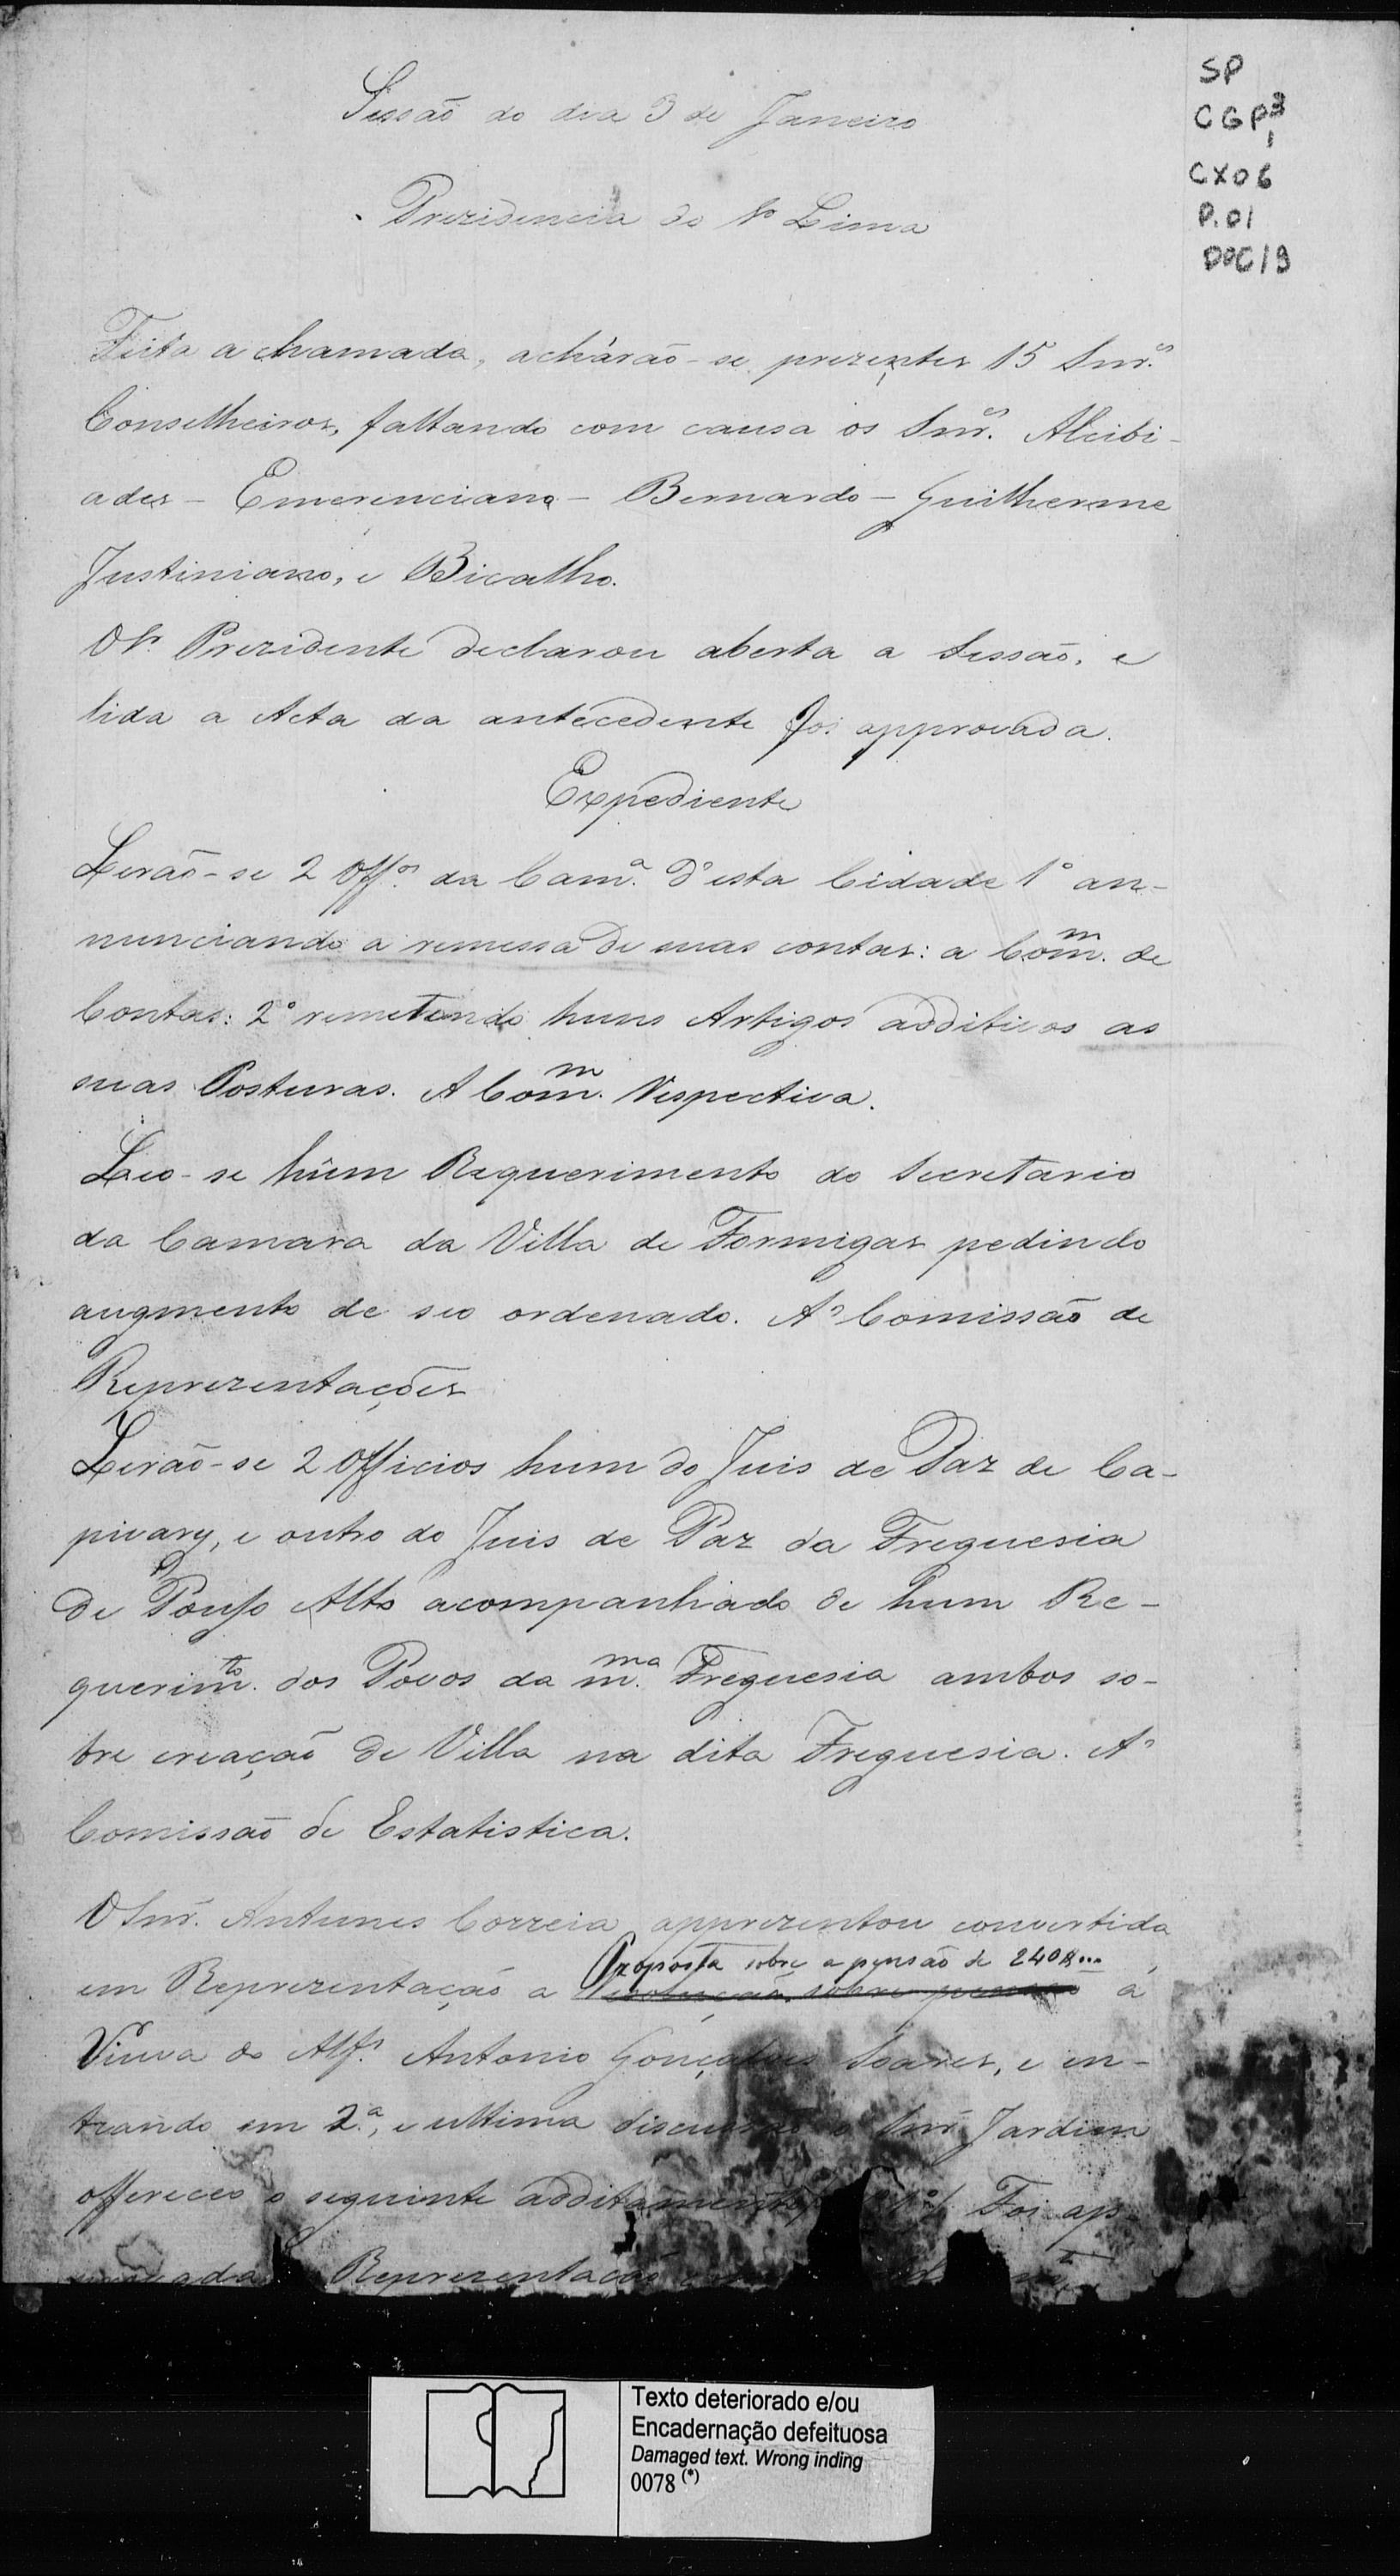 SP
CGP 3
1
CX06
P.01
DOC19
Sessão do dia 3 de Janeiro
Prezidencia do Sr Lima
Feita a chamada, achárão-se prezentes 15 Snr.es
Conselheiros, faltando com causa os Snr.es Alcibi-
ades - Emerenciano - Bernardo - Guilherme
Justiniano, e Bicalho.
O Sr. Prezidente declarou aberta a Sessão, e
lida a Acta da antecedente foi approvada.
Expediente
Lerão-se 2 Off.os da Cam.a d'esta Cidade 1º an-
nunciando a remessa de suas contas: a Com.m de
Contas: 2º remetendo huns Artigos additivos as
suas Posturas. A Com.m Respectiva.
Leo-se hum Requerimento do Secretario
da Camara da Villa de Formigas pedindo
augmento de seo ordenado. A' Comissão de
Reprezentações
Lerão-se 2 Officios hum do Juis de Paz de Ca-
pivary, e outro do Juis de Paz da Freguesia
de Pouso Alto acompanhado de hum Re-
querim.to dos Povos da m.ma Freguesia ambos so-
bre creação de Villa na dita Freguesia. A'
Comissão de Estatistica.
O Snr. Antunes Correia apprezentou convertida
Proposta sobre a pensão de 240R...
em Reprezentação a Resolução sobre pensão á
Viuva do Alf.s Antonio Gonçalves Soares, e en-
trando em 2.ª, e ultima discussão o Snr Jardim
offereceo o seguinte additamento Foi ap-
Reprezentação
Texto deteriorado e/ou
Encadernação defeituosa
Damaged text. Wrong inding
0078 (*)